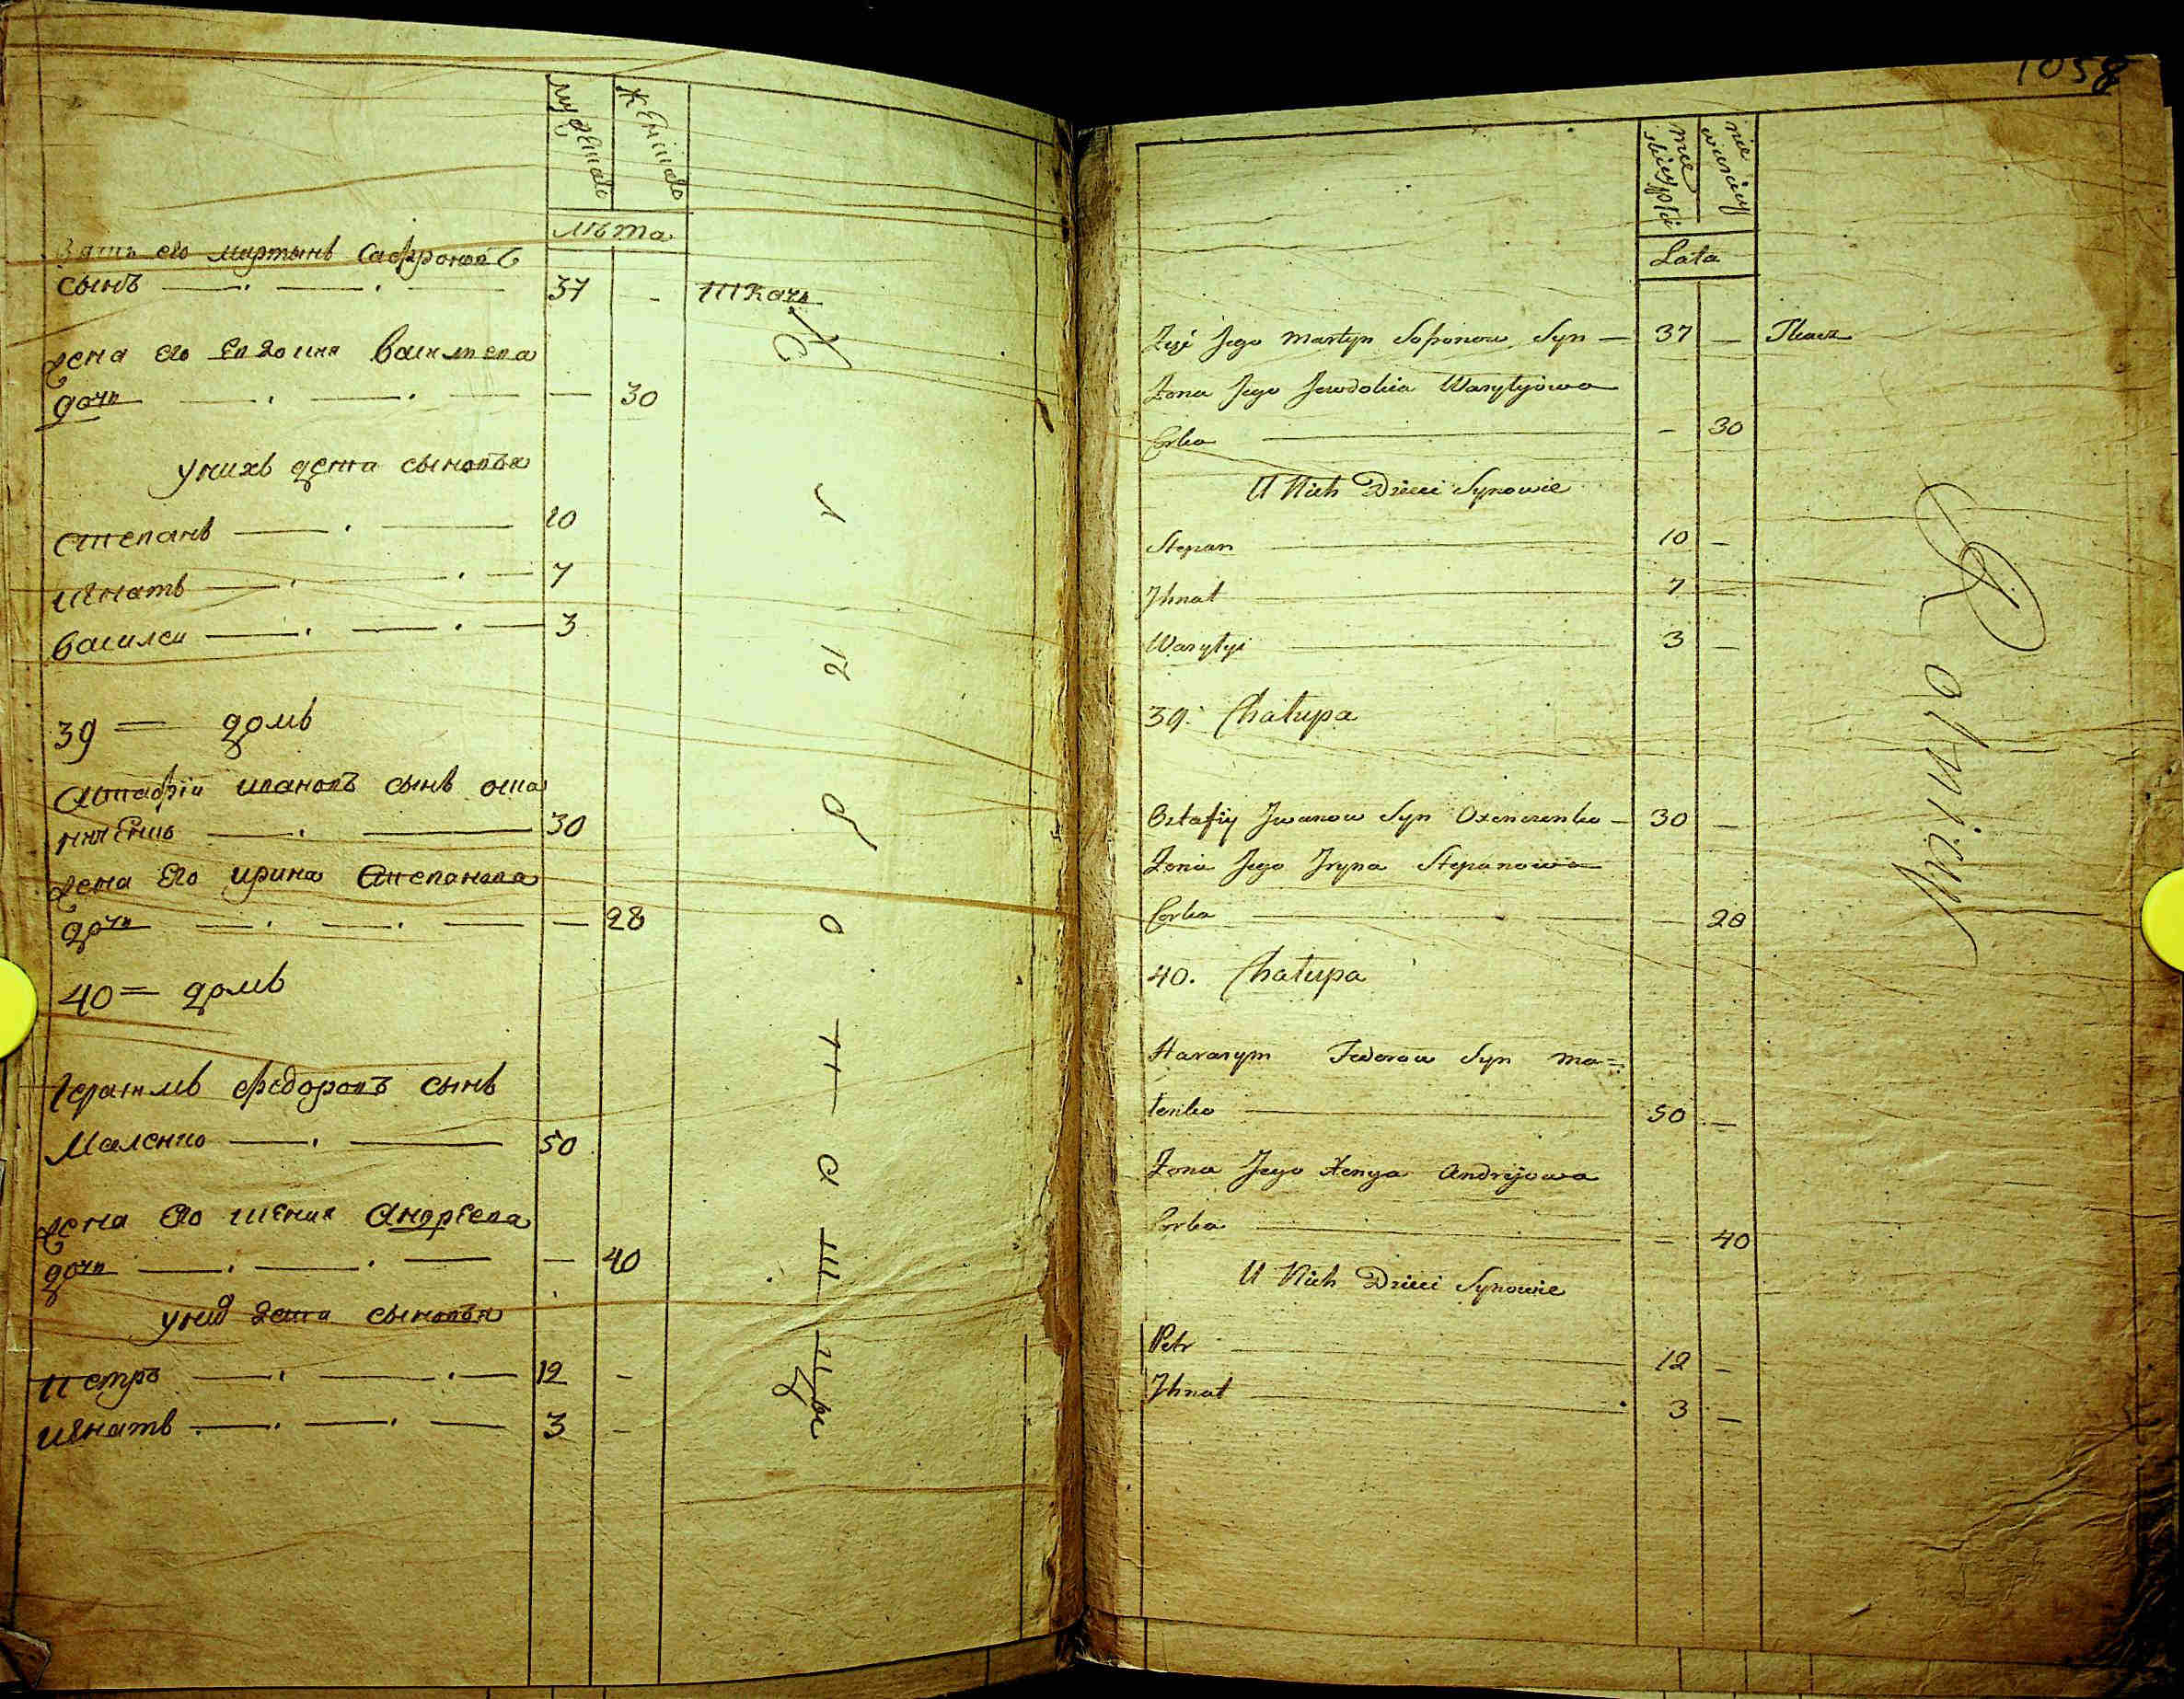 мужеска
женска
лѣта
Зять его мартынъ Сафроновъ
сынъ 37 - ткачь
жена его Евдокия василиева
дочь — 30
унихъ дети сыновья
степанъ 10
игнатъ 7
василеи 3
39 = домъ
Астафiи ивановъ сынъ
30
жена его ирина степанова
дочь — 28
40 = домъ
Герасимъ федоровъ сынъ
Маленко 50
жена его Андреева
дочь — 40
уних дети сыновья
петръ 12 -
игнатъ 3 -
хлѣбопашцы
1058
Lata
Zięć Jego Martyn Sofronow Syn — 37 — Tkacz
Żona Jego Jewdokia Wasylijowa
Corka - 30
U Nich Dzieci Synowie
Stepan 10 -
Jhnat 7 —
Wasylyi 3 —
39. Chałupa
Ostafiy Jwanow Syn — 30 —
Żona Jego Jryna Stepanowa
Corka — 28
40. Chałupa
Harasym Fedorow Syn Ma=
łenko 50 —
Żona Jego Xenya Andrijowa
Corka - 40
U Nich Dzieci Synowie
Petr 12 -
Jhnat 3 —
Rolnicy